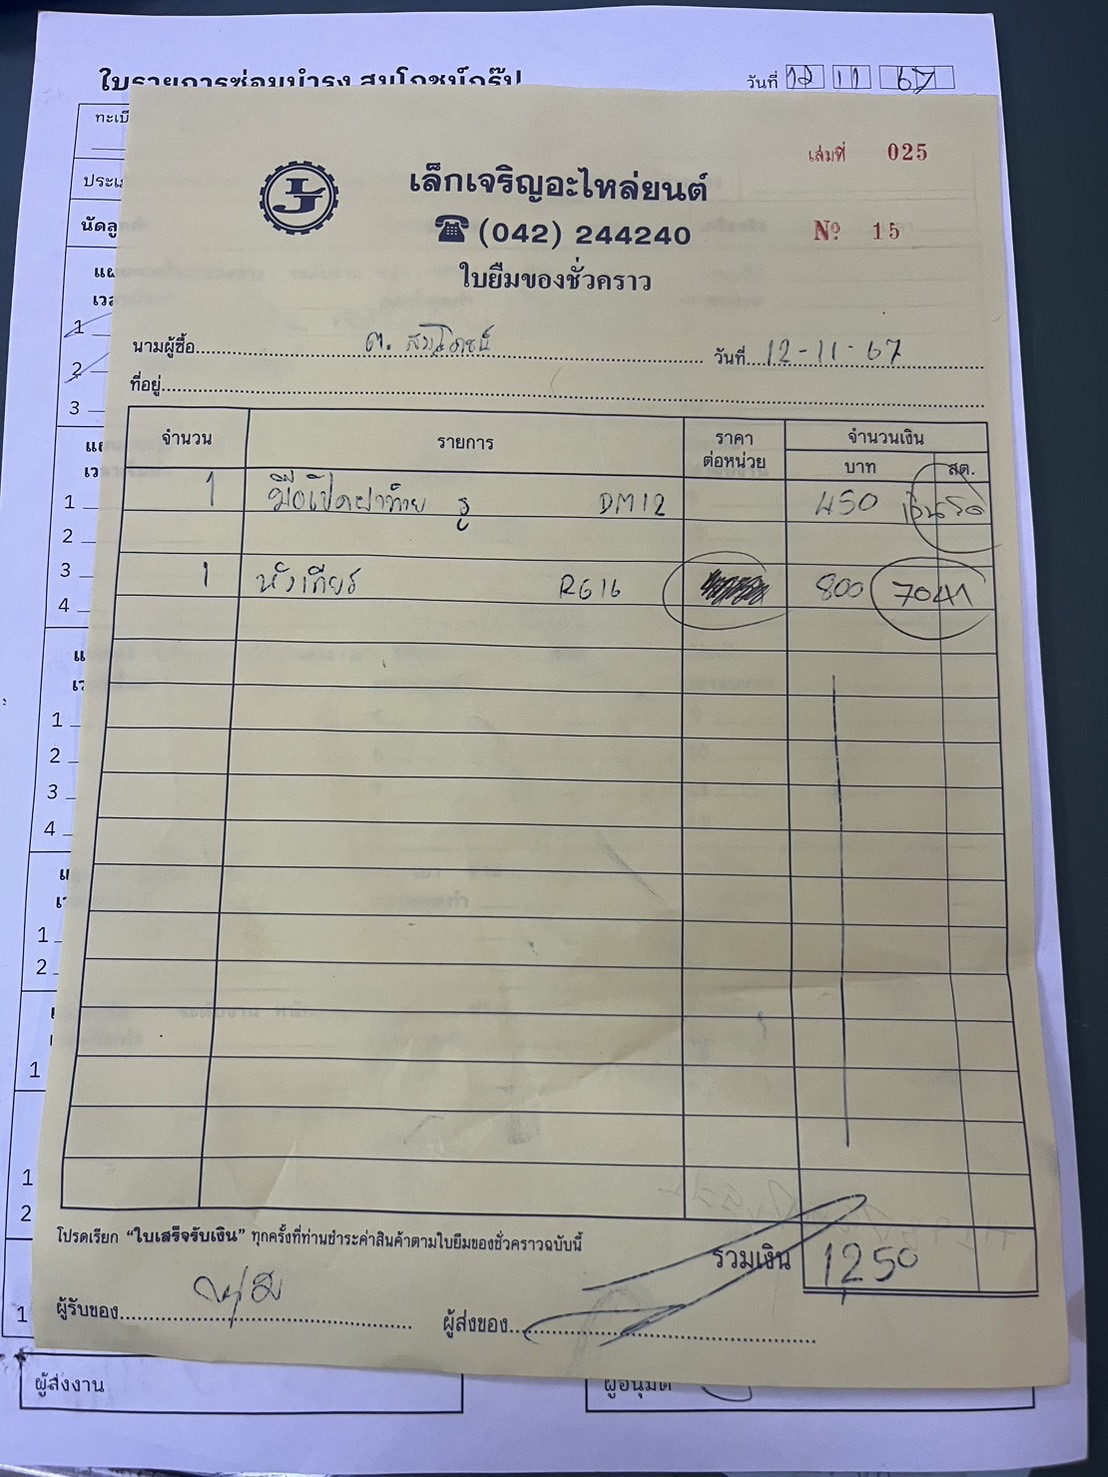 ใบรายการซ่อมบำรุง สมโภชน์กรุ๊ป
วันที่ 12 11 67
ทะเบี
ประเภ
นัดลู
LJ
เล็กเจริญอะไหล่ยนต์
เล่มที่ 025
☎ (042) 244240
№ 15
ใบยืมของชั่วคราว
นามผู้ซื้อ ต. สมโภชน์ วันที่ 12-11-67
ที่อยู่
จำนวน รายการ ราคาต่อหน่วย จำนวนเงิน
บาท สต.
1 มือเปิดฝาท้าย DM12 450
1 หัวเกียร์ RG16 800 7041
โปรดเรียก “ใบเสร็จรับเงิน” ทุกครั้งที่ท่านชำระค่าสินค้าตามใบยืมของชั่วคราวฉบับนี้
รวมเงิน 1250
ผู้รับของ ผู้ส่งของ
ผู้ส่งงาน ผู้อนุมัติ